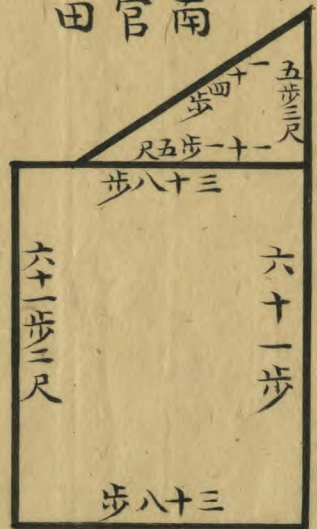 南官田
五步三尺
一十四步
一十一步五尺
三十八步
六十一步
六十一步二尺
三十八步